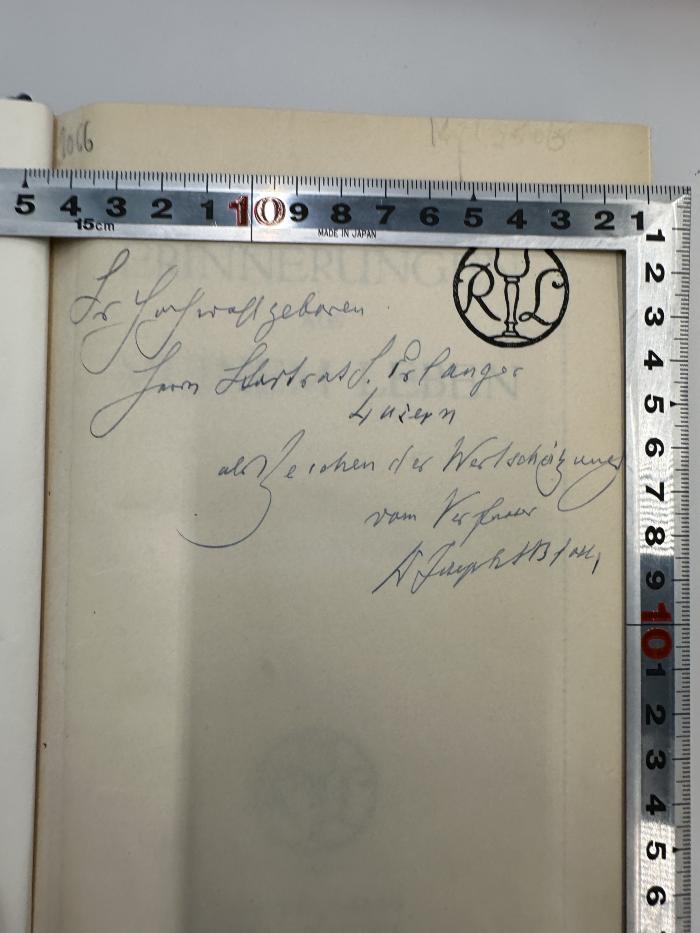 1066
5 4 3 2 1 10 9 8 7 6 5 4 3 2 1
15cm
MADE IN JAPAN
1
2
3
4
5
6
7
8
9
10
1
2
3
4
5
6
ERINNERUNG
LEBEN
R L
Sr Hochwohlgeboren
Herrn Stadtrat S. Erlanger
Luzern
als Zeichen der Wertschätzung
vom Verfasser
Dr Joseph S Bloch